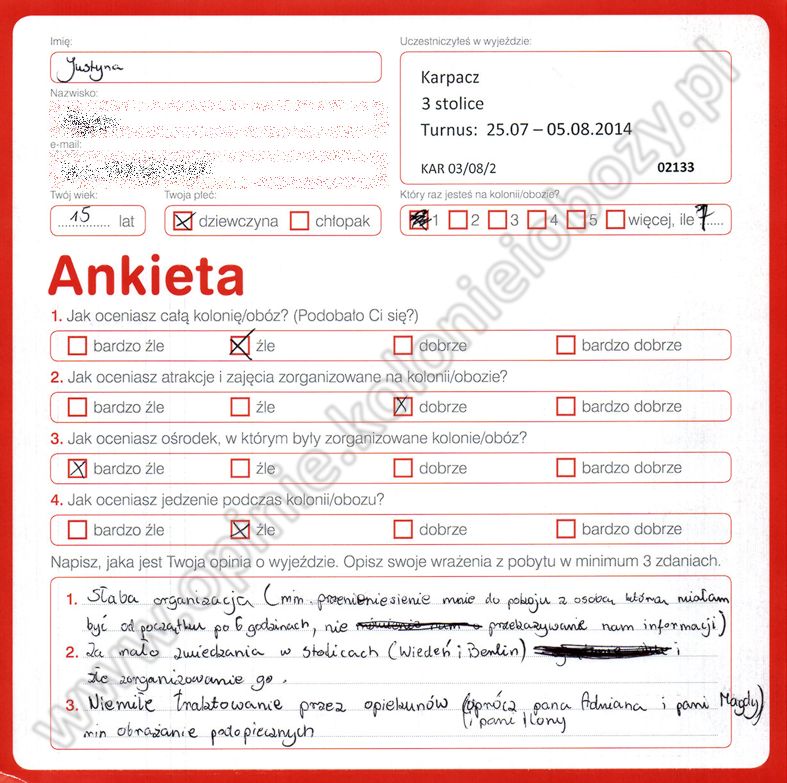 Imię:
Justyna
Uczestniczyłeś w wyjeździe:
Karpacz
3 stolice
Turnus: 25.07 – 05.08.2014
KAR 03/08/2 02133
Nazwisko:
e-mail:
Twój wiek: Twoja płeć: Który raz jesteś na kolonii/obozie?
15 lat dziewczyna chłopak 1 2 3 4 5 więcej, ile 7
Ankieta
1. Jak oceniasz całą kolonię/obóz? (Podobało Ci się?)
bardzo źle źle dobrze bardzo dobrze
2. Jak oceniasz atrakcje i zajęcia zorganizowane na kolonii/obozie?
bardzo źle źle dobrze bardzo dobrze
3. Jak oceniasz ośrodek, w którym były zorganizowane kolonie/obóz?
bardzo źle źle dobrze bardzo dobrze
4. Jak oceniasz jedzenie podczas kolonii/obozu?
bardzo źle źle dobrze bardzo dobrze
Napisz, jaka jest Twoja opinia o wyjeździe. Opisz swoje wrażenia z pobytu w minimum 3 zdaniach.
1. Słaba organizacja (min. przeniesienie mnie do pokoju z osobą którą miałam
być od początku po 6 godzinach, nie przekazywanie nam informacji)
2. Za mało zwiedzania w stolicach (Wiedeń i Berlin) i
złe zorganizowanie go.
3. Niemiłe traktowanie przez opiekunów (oprócz pana Adriana i pani Magdy)
(i pani Ilony
min obrażanie podopiecznych
www.opinie.kolonieiobozy.pl